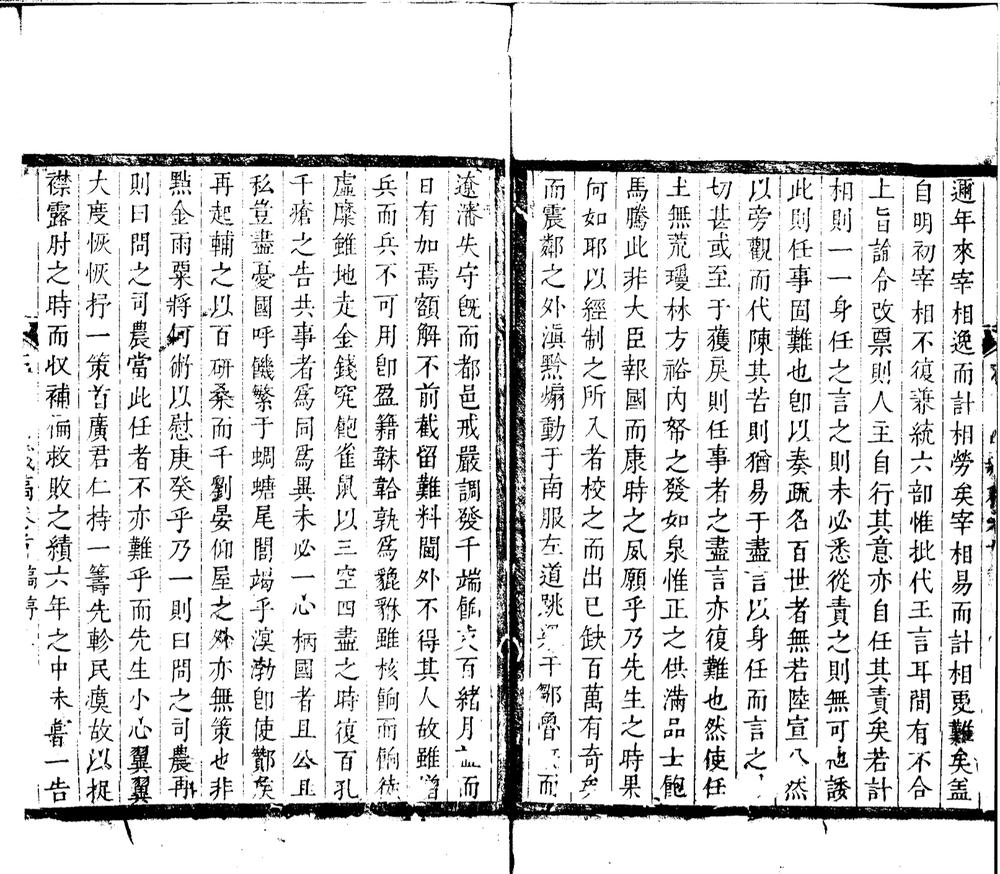 邇年來宰相逸而計相勞矣宰相易而計相更難矣盖
自明初宰相不復兼統六部惟批代王言耳間有不合
上旨諭令改票則人主自行其意亦自任其責矣若計
相則一一身任之言之則未必悉從責之則無可也諉
此則任事固難也卽以奏疏名百世者無若陸宣公然
以旁觀而代陳其苦則猶易于盡言以身任而言之
切甚或至于獲戾則任事者之盡言亦復難也然使任
土無荒瓊林方裕內帑之發如泉惟正之供滿品士飽
馬騰此非大臣報國而康時之夙願乎乃先生之時果
何如耶以經制之所入者校之而出已缺百萬有奇矣
而震鄰之外滇黔煽動于南服左道跳梁于鄒魯而
遼瀋失守旣而都邑戒嚴調發千端餉百緒月益而
日有加焉額解不前截留難料閫外不得其人故雖增
兵而兵不可用卽盈籍韎韐孰爲貔貅雖核餉而餉徒
虛糜雖地走金錢究飽雀鼠以三空四盡之時復百孔
千瘡之告共事者爲同爲異未必一心柄國者且公且
私豈盡憂國呼饑繁于蜩螗尾閭竭乎溟渤卽使酇矦
再起輔之以百研桑而千劉晏仰屋之外亦無策也非
點金雨粟將何術以慰庚癸乎乃一則曰問之司農再
則曰問之司農當此任者不亦難乎而先生小心翼翼
大度恢恢抒一策首廣君仁持一籌先軫民瘼故以捉
襟露肘之時而収補偏救敗之績六年之中未甞一告